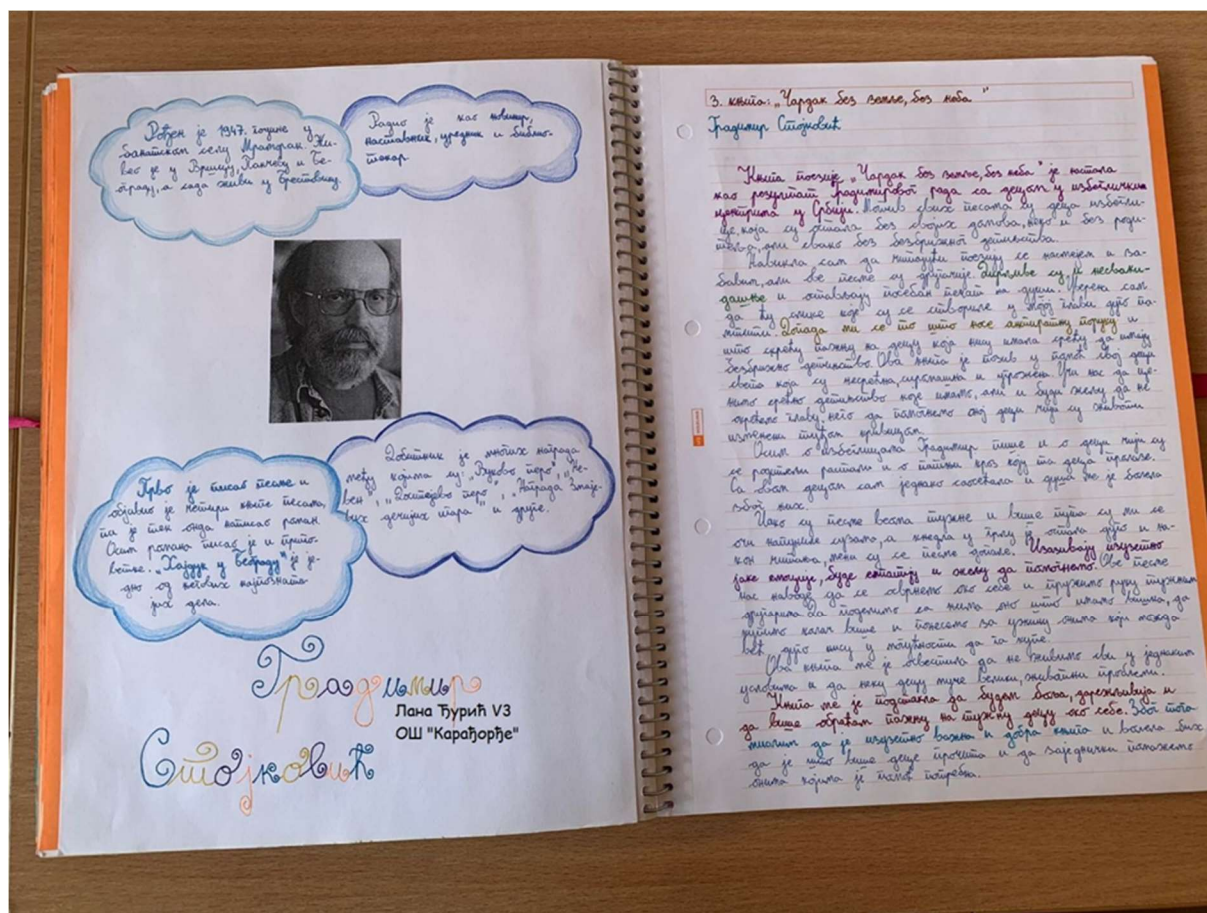 Рођен је 1947. године у
банатском селу Мраморак. Жи-
вео је у Вршцу, Панчеву и Бе-
ограду, а сада живи у Брестовику.
Радио је као новинар,
наставник, уредник и библио-
текар
Добитник је многих награда
међу којима су: „Вуково перо", „Не-
вен", „Доситејево перо", „Награда Змаје-
вих дечјих игара" и друге.
Прво је писао песме и
објавио је четири књиге песама
па је тек онда написао роман.
Осим романа писао је и припо-
ветке. „Хајдук у Београду" је је-
дно од његових најпозна-
јих дела.
Градимир
Стојковић
Лана Ђурић V3
ОШ "Карађорђе"
3. књига: „Чардак без земље, без неба"
Градимир Стојковић
Књига поезије „Чардак без земље, без неба" је настала
као резултат Градимировог рада са децом у избегличким
центрима у Србији. Мотив свих песама су деца избегли-
це, која су остала без својих домова, неко и без роди-
теља, али свако без безбрижног детињства.
Навикла сам да читајући поезију се насмејем и за-
бавим, али ове песме су другачије. Дирљиве су и несваки-
дашње и остављају посебан печат на души. Уверена сам
да ћу слике које су се створиле у мојој глави дуго па-
мтити. Допада ми се то што носе ангажовану поруку и
што скрећу пажњу на децу која нису имала срећу да имају
безбрижно детињство. Ова књига је позив у помоћ свој деци
света која су несрећна, сиромашна и угрожена. Учи нас да це-
нимо срећно детињство које имамо, али и буди жељу да не
окрећемо главу, него да помогнемо оној деци чији су животи
измењени туђом кривицом.
Осим о избеглицама Градимир пише и о деци чији су
се родитељи растали и о патњи кроз коју та деца пролазе.
Са свом децом сам једнако саосећала и душа ме је болела
због њих.
Иако су песме веома тужне и више пута су ми се
очи напуниле сузама, а кнедла у грлу је остала дуго и на-
кон читања, мени су се песме допале. Изазивају изузетно
јаке емоције, буде емпатију и жељу да помогнемо. Ове песме
нас наводе да се осврнемо око себе и пружимо руку тужним
другарима. Да поделимо са њима оно што имамо вишка, да
купимо колач више и понесемо за ужину онима који можда
већ дуго нису у могућности да га купе.
Ова књига ме је освестила да не живимо сви у једнаким
условима и да неку децу муче велики, животни проблеми.
Књига ме је подстакла да будем боља, дарежљивија и
да више обраћам пажњу на тужну децу око себе. Због тога
мислим да је изузетно важна и добра књига и волела бих
да је што више деце прочита и да заједнички помажемо
онима којима је помоћ потребна.